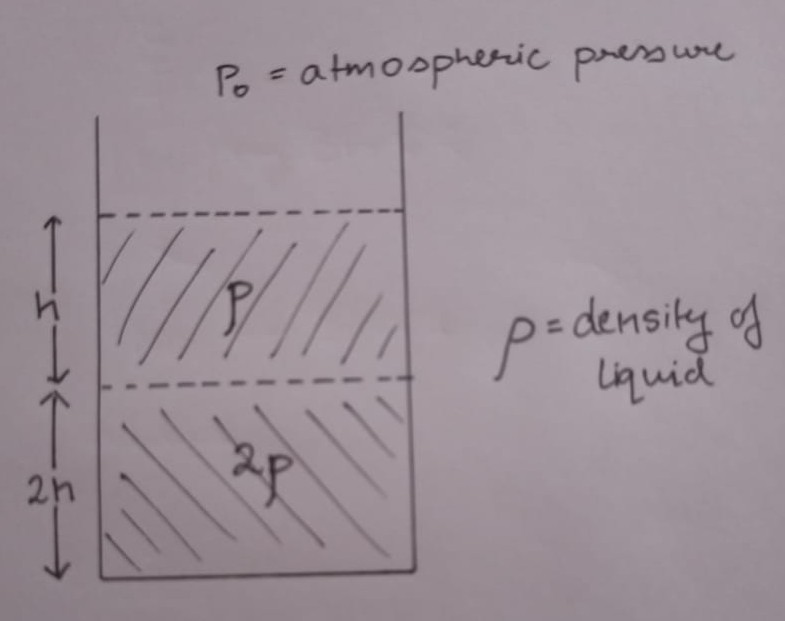 P₀ = atmospheric pressure
h
ρ
ρ = density of
liquid
2h
2ρ